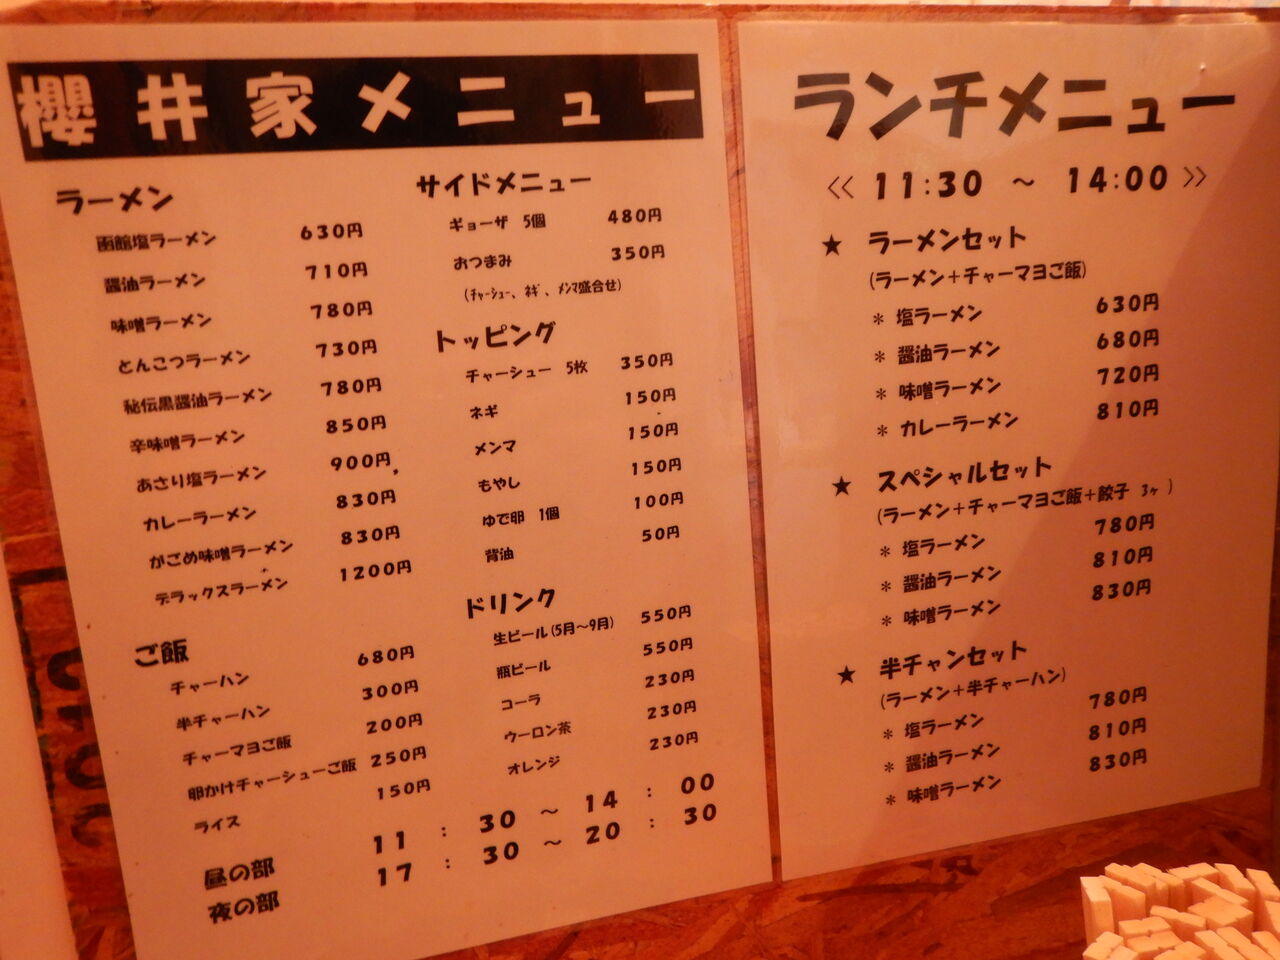 櫻井家メニュー
ラーメン
函館塩ラーメン 630円
醤油ラーメン 710円
味噌ラーメン 780円
とんこつラーメン 730円
秘伝黒醤油ラーメン 780円
辛味噌ラーメン 850円
あさり塩ラーメン 900円
カレーラーメン 830円
がごめ味噌ラーメン 830円
デラックスラーメン 1200円
ご飯
チャーハン 680円
半チャーハン 300円
チャーマヨご飯 200円
卵かけチャーシューご飯 250円
ライス 150円
サイドメニュー
ギョーザ 5個 480円
おつまみ 350円
(ﾁｬｰｼｭｰ、ﾈｷﾞ、ﾒﾝﾏ盛合せ)
トッピング
チャーシュー 5枚 350円
ネギ 150円
メンマ 150円
もやし 150円
ゆで卵 1個 100円
背油 50円
ドリンク
生ビール(5月〜9月) 550円
瓶ビール 550円
コーラ 230円
ウーロン茶 230円
オレンジ 230円
昼の部 11：30〜14：00
夜の部 17：30〜20：30
ランチメニュー
《 11:30 〜 14:00 》
★ ラーメンセット
(ラーメン＋チャーマヨご飯)
＊ 塩ラーメン 630円
＊ 醤油ラーメン 680円
＊ 味噌ラーメン 720円
＊ カレーラーメン 810円
★ スペシャルセット
(ラーメン＋チャーマヨご飯＋餃子 3ヶ)
＊ 塩ラーメン 780円
＊ 醤油ラーメン 810円
＊ 味噌ラーメン 830円
★ 半チャンセット
(ラーメン＋半チャーハン)
＊ 塩ラーメン 780円
＊ 醤油ラーメン 810円
＊ 味噌ラーメン 830円